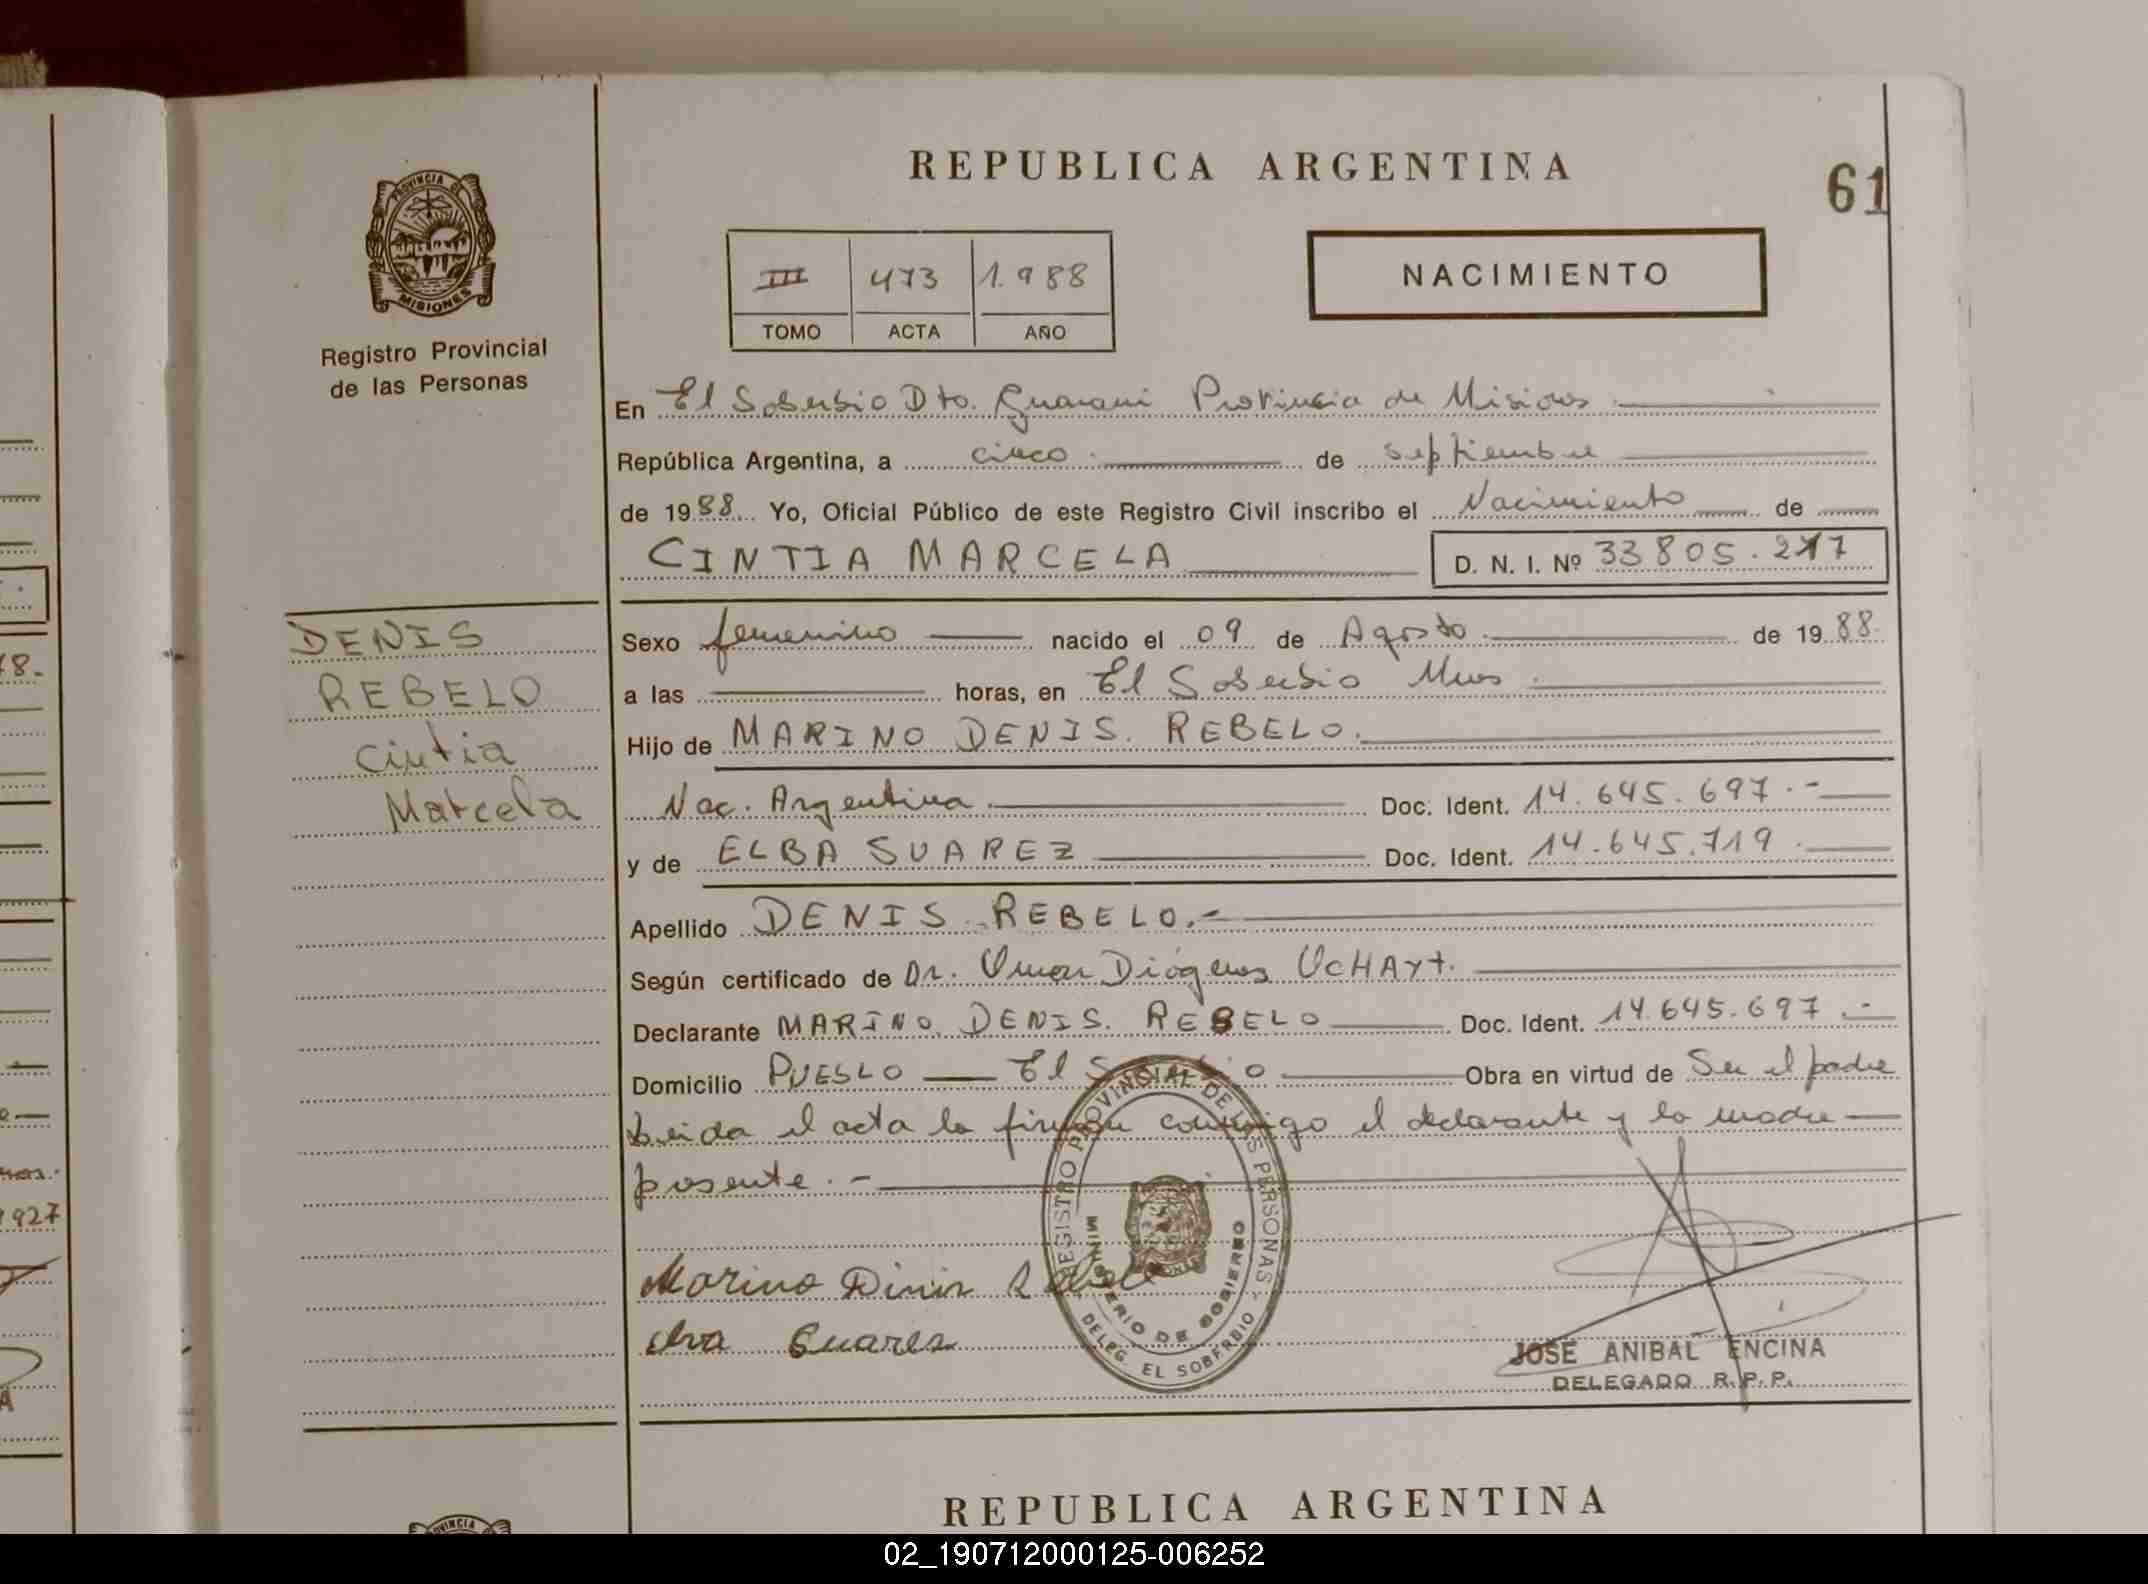 REPUBLICA ARGENTINA
61
PROVINCIA DE
MISIONES
Registro Provincial
de las Personas
III 473 1.988
TOMO ACTA AÑO
NACIMIENTO
En El Soberbio Dto. Guarani Provincia de Misiones
República Argentina, a cinco de septiembre
de 1988 Yo, Oficial Público de este Registro Civil inscribo el Nacimiento de
CINTIA MARCELA
D. N. I. Nº 33805.217
DENIS
REBELO
Cintia
Marcela
Sexo femenino nacido el 09 de Agosto de 1988.
a las horas, en El Soberbio Mnes
Hijo de MARINO DENIS. REBELO.
Nac. Argentina. Doc. Ident. 14.645.697.-
y de ELBA SUAREZ Doc. Ident. 14.645.719.
Apellido DENIS REBELO.-
Según certificado de Dr. Diógenes
Declarante MARINO DENIS. REBELO Doc. Ident. 14.645.697.-
Domicilio PUEBLO El Obra en virtud de Ser el padre
Leida el acta la firman conmigo el declarante y la madre
presente.-
REGISTRO PROVINCIAL DE LAS PERSONAS -
MINISTERIO DE GOBIERNO
DELEG. EL SOBERBIO
Marino Dinis
Suares
JOSE ANIBAL ENCINA
DELEGADO R.P.P.
REPUBLICA ARGENTINA
78.-
1927
A
02_190712000125-006252